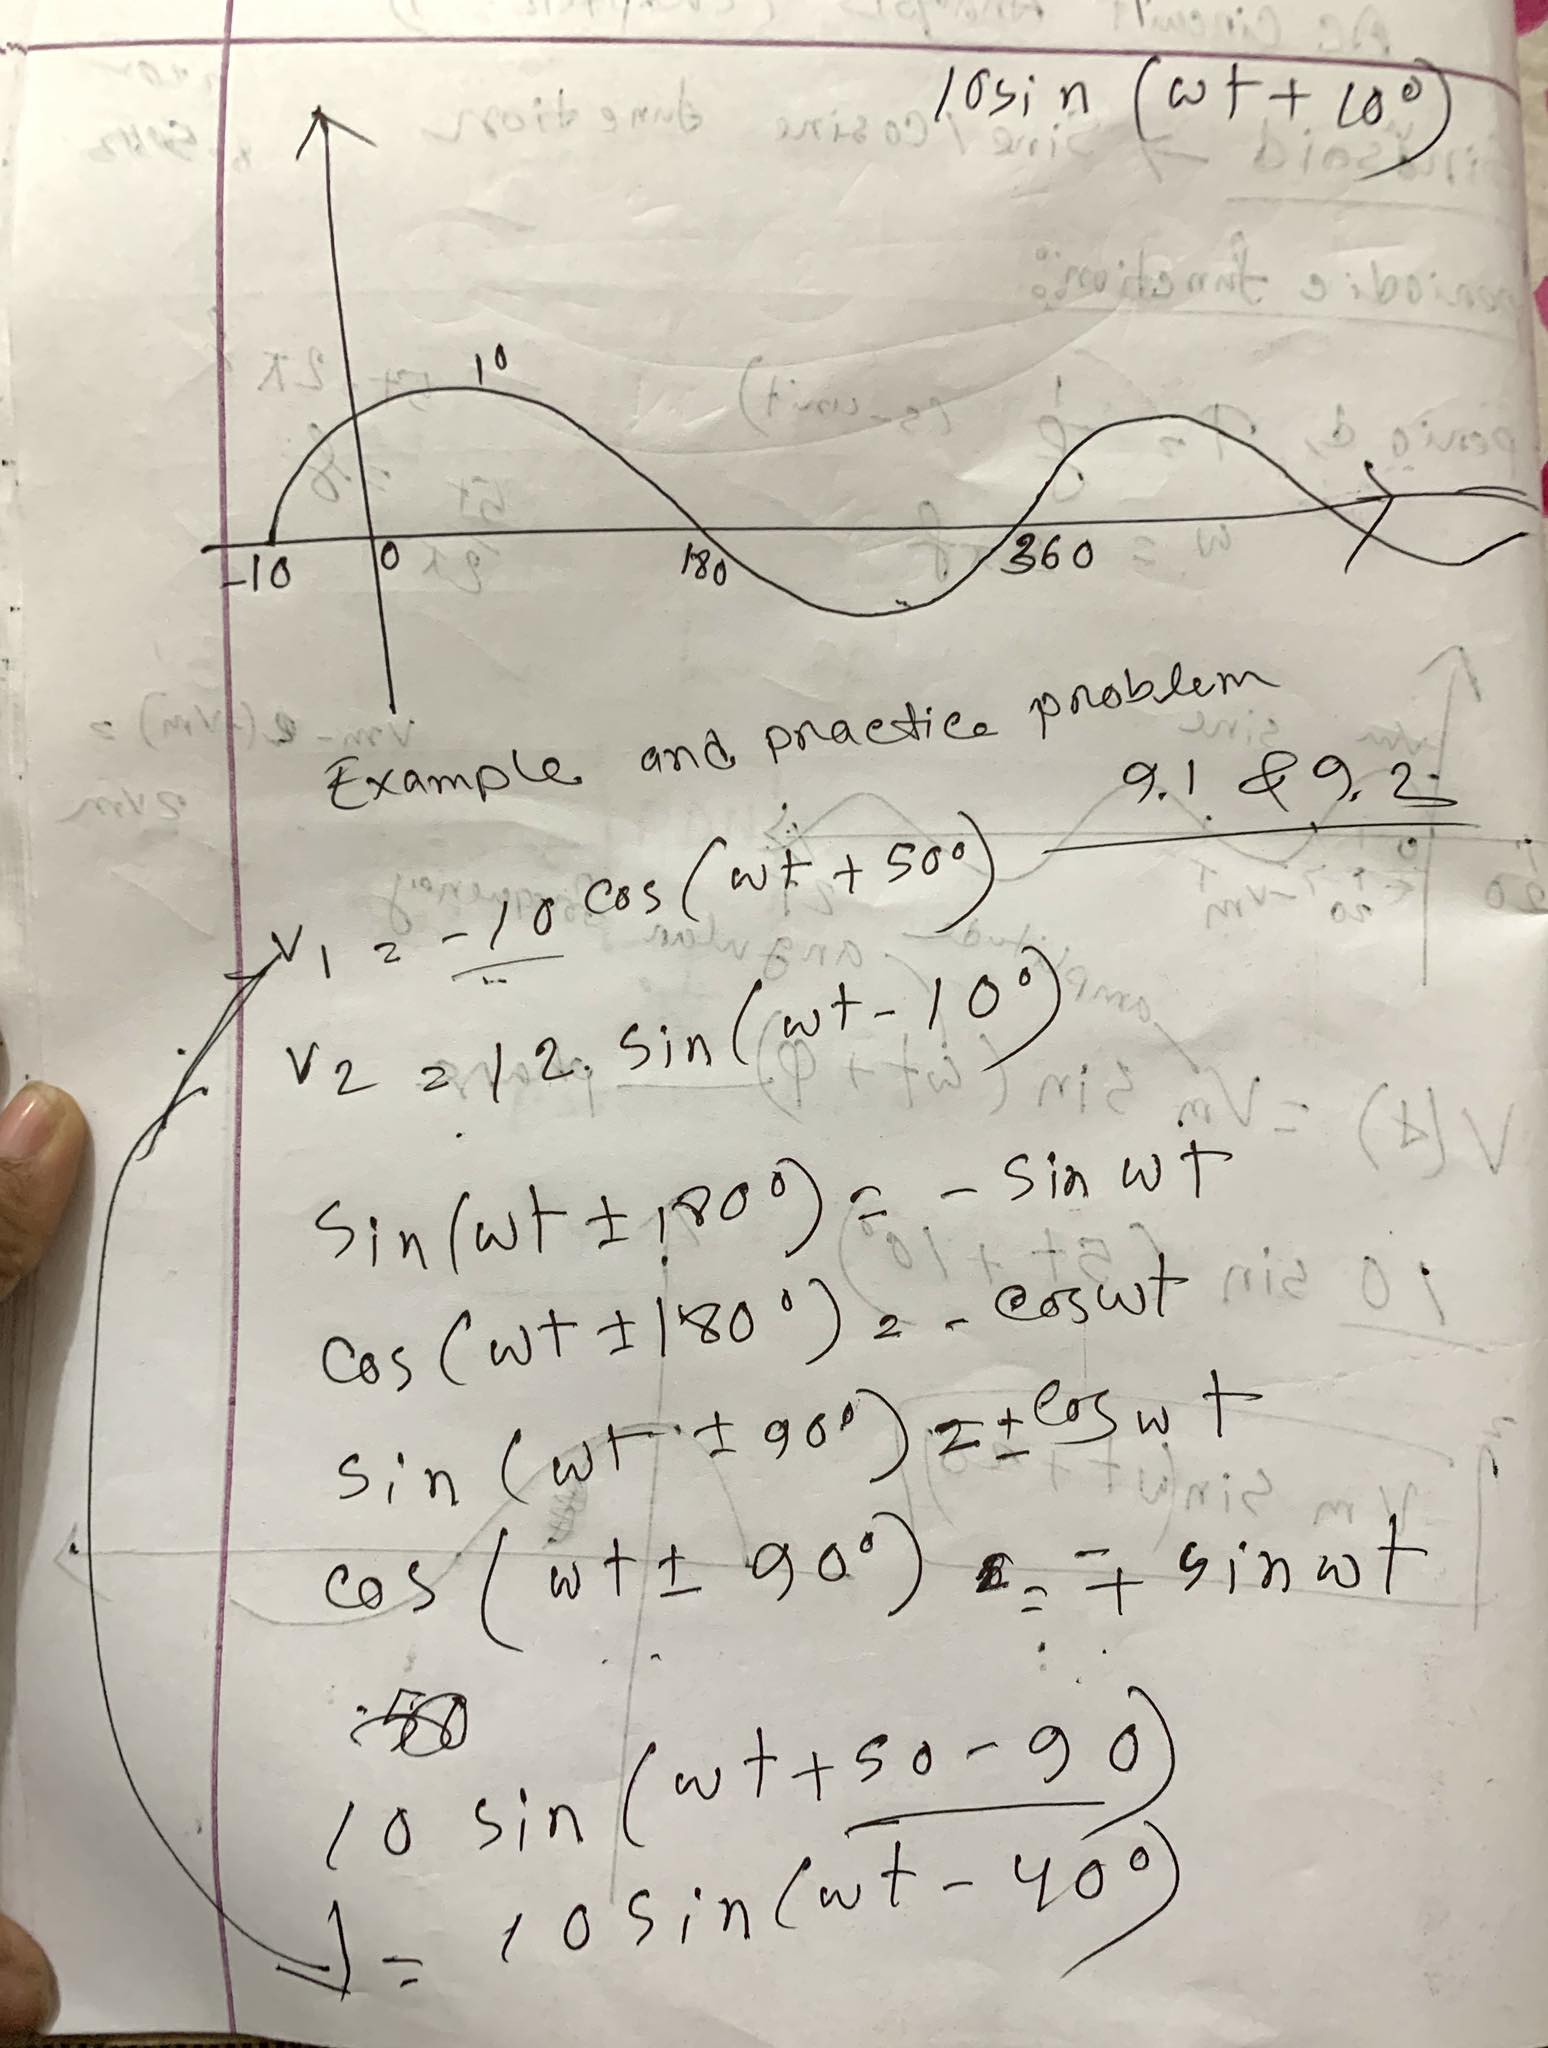 10sin (ωt + 10°)
10
-10 0 180 360
Example and practice problem
9.1 & 9.2
V1 = -10 cos (ωt + 50°)
V2 = 12 sin (ωt - 10°)
sin (ωt ± 180°) = - sin ωt
cos (ωt ± 180°) = - cos ωt
sin (ωt ± 90°) = ± cos ωt
cos (ωt ± 90°) = ∓ sin ωt
10 sin (ωt + 50 - 90)
= 10 sin (ωt - 40°)